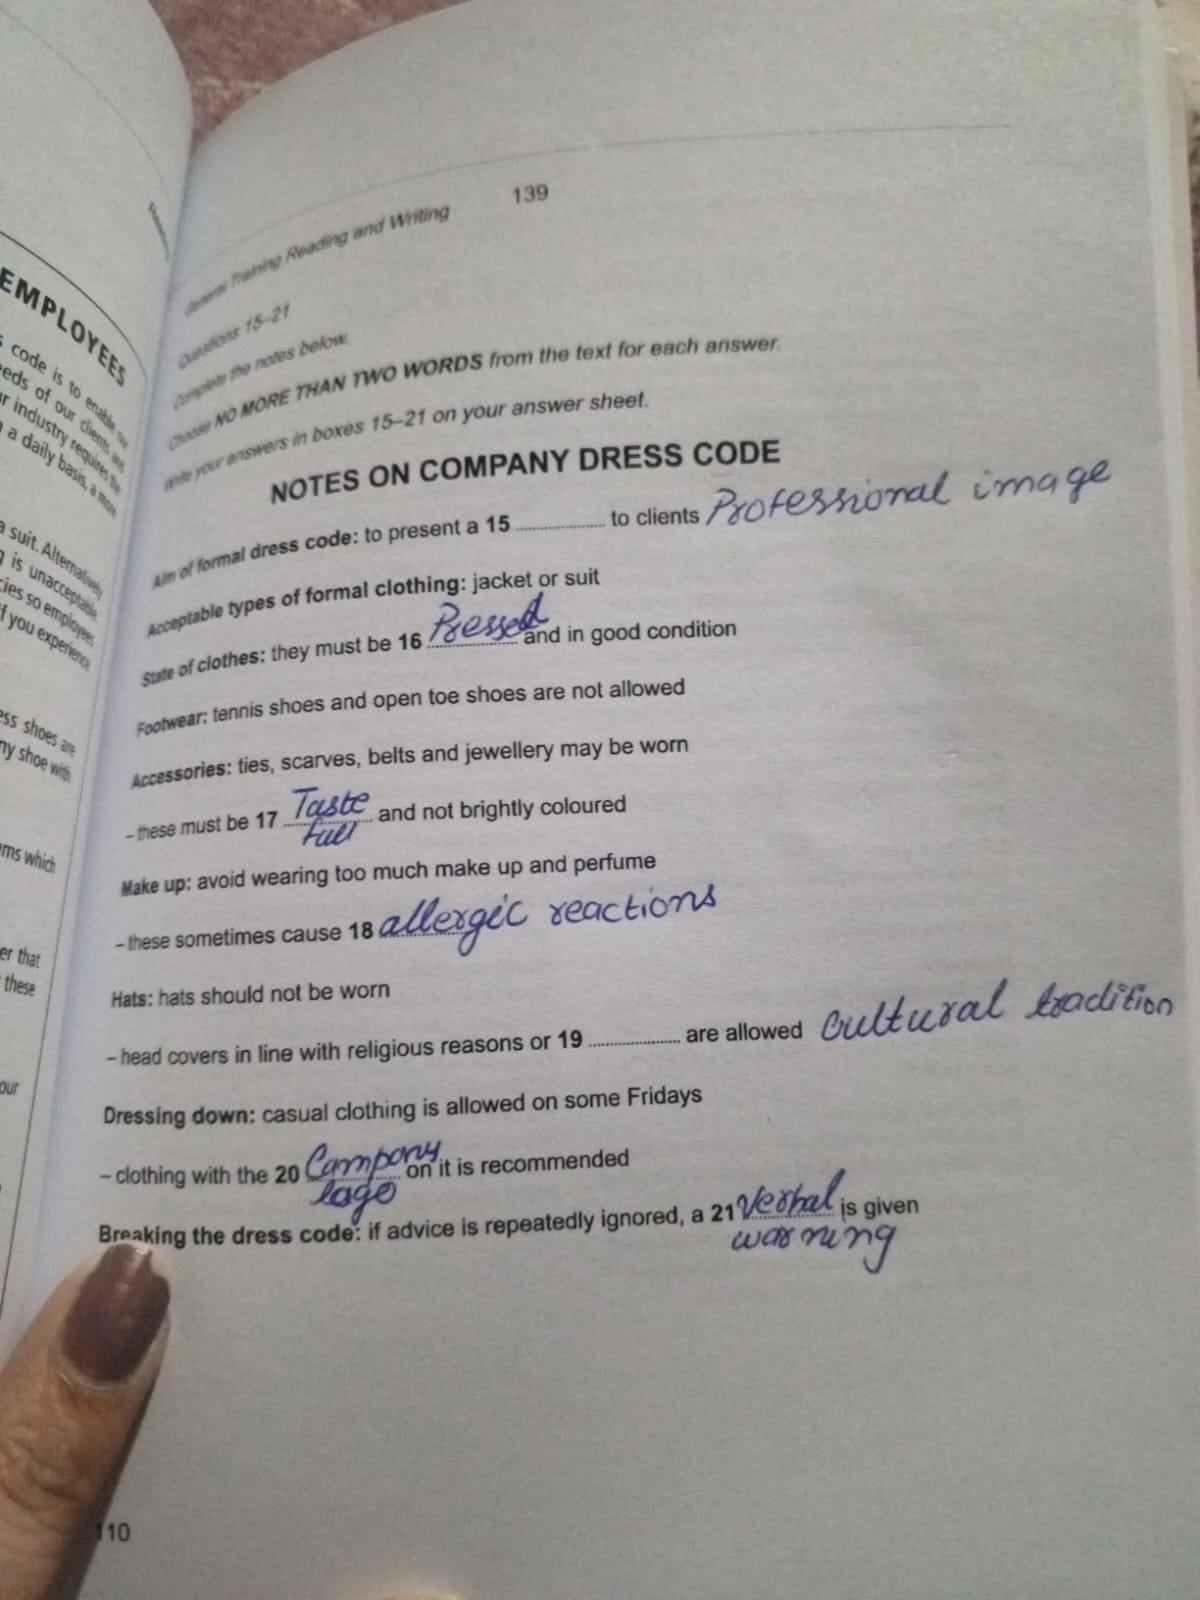 EMPLOYEES
code is to enable our
eds of our clients and
industry requires the
a daily basis, a more
a suit. Alternatively
is unacceptable.
cies so employees
if you experience
ess shoes are
ny shoe with
ms which
er that
these
our
139
General Training Reading and Writing
Questions 15–21
Complete the notes below.
Choose NO MORE THAN TWO WORDS from the text for each answer.
Write your answers in boxes 15–21 on your answer sheet.
NOTES ON COMPANY DRESS CODE
Aim of formal dress code: to present a 15 .................. to clients Professional image
Acceptable types of formal clothing: jacket or suit
State of clothes: they must be 16 Pressed and in good condition
Footwear: tennis shoes and open toe shoes are not allowed
Accessories: ties, scarves, belts and jewellery may be worn
– these must be 17 Taste and not brightly coloured
full
Make up: avoid wearing too much make up and perfume
– these sometimes cause 18 allergic reactions
Hats: hats should not be worn
– head covers in line with religious reasons or 19 .................. are allowed cultural tradition
Dressing down: casual clothing is allowed on some Fridays
– clothing with the 20 Company on it is recommended
logo
Breaking the dress code: if advice is repeatedly ignored, a 21 Verbal is given
warning
110